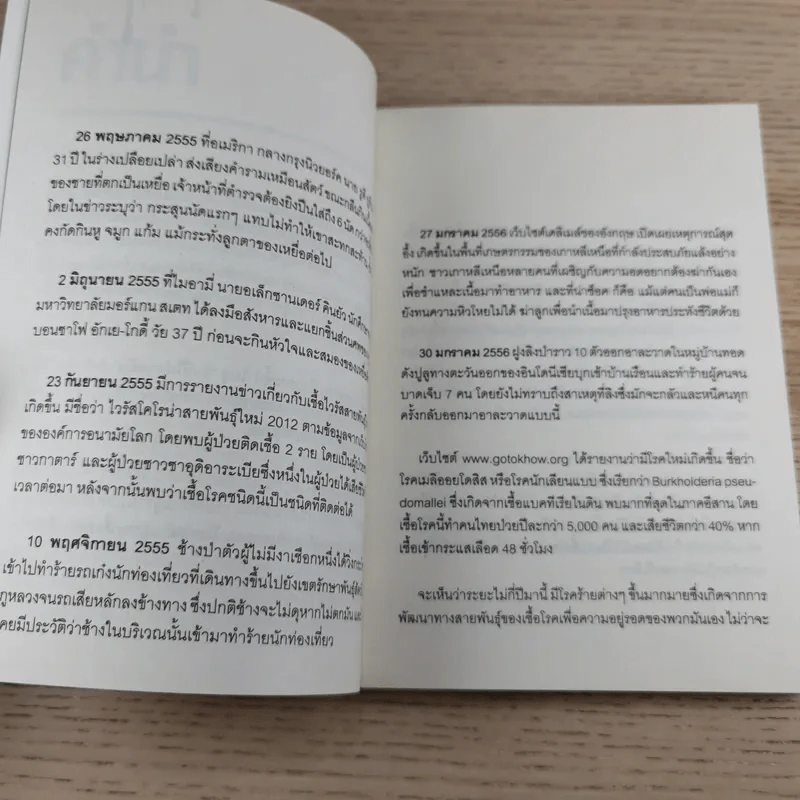 26 พฤษภาคม 2555 ที่อเมริกา กลางกรุงนิวยอร์ค นาย
31 ปี ในร่างเปลือยเปล่า ส่งเสียงคำรามเหมือนสัตว์ ขณะกัดกิน
ของชายที่ตกเป็นเหยื่อ เจ้าหน้าที่ตำรวจต้องยิงปืนใส่ถึง 6 นัด กว่าจะ
โดยในข่าวระบุว่า กระสุนนัดแรกๆ แทบไม่ทำให้เขาสะทกสะท้าน
คงกัดกินหู จมูก แก้ม แม้กระทั่งลูกตาของเหยื่อต่อไป
2 มิถุนายน 2555 ที่ไมอามี่ นายอเล็กซานเดอร์ คินยัว นักศึกษา
มหาวิทยาลัยมอร์แกน สเตท ได้ลงมือสังหารและแยกชิ้นส่วนศพของ
บอนซาโฟ อักเย-โกดี้ วัย 37 ปี ก่อนจะกินหัวใจและสมองของเหยื่อ
23 กันยายน 2555 มีการรายงานข่าวเกี่ยวกับเชื้อไวรัสสายพันธุ์
เกิดขึ้น มีชื่อว่า ไวรัสโคโรน่าสายพันธุ์ใหม่ 2012 ตามข้อมูลจาก
ขององค์การอนามัยโลก โดยพบผู้ป่วยติดเชื้อ 2 ราย โดยเป็นผู้ป่วย
ชาวกาตาร์ และผู้ป่วยชาวซาอุดิอาระเบียซึ่งหนึ่งในผู้ป่วยได้เสียชีวิต
เวลาต่อมา หลังจากนั้นพบว่าเชื้อโรคชนิดนี้เป็นชนิดที่ติดต่อได้
10 พฤศจิกายน 2555 ช้างป่าตัวผู้ไม่มีงาเชือกหนึ่งได้วิ่ง
เข้าไปทำร้ายรถเก๋งนักท่องเที่ยวที่เดินทางขึ้นไปยังเขตรักษาพันธุ์
ภูหลวงจนรถเสียหลักลงข้างทาง ซึ่งปกติช้างจะไม่ดุหากไม่ตกมัน และ
เคยมีประวัติว่าช้างในบริเวณนั้นเข้ามาทำร้ายนักท่องเที่ยว
27 มกราคม 2556 เว็บไซต์เดลิเมล์ของอังกฤษ เปิดเผยเหตุการณ์สุด
อึ้ง เกิดขึ้นในพื้นที่เกษตรกรรมของเกาหลีเหนือที่กำลังประสบภัยแล้งอย่าง
หนัก ชาวเกาหลีเหนือหลายคนที่เผชิญกับความอดอยากต้องฆ่ากันเอง
เพื่อชำแหละเนื้อมาทำอาหาร และที่น่าช็อค ก็คือ แม้แต่คนเป็นพ่อแม่ก็
ยังทนความหิวโหยไม่ได้ ฆ่าลูกเพื่อนำเนื้อมาปรุงอาหารประทังชีวิตด้วย
30 มกราคม 2556 ฝูงลิงป่าราว 10 ตัวออกอาละวาดในหมู่บ้านทอด
ดังปูลูทางตะวันออกของอินโดนีเซียบุกเข้าบ้านเรือนและทำร้ายผู้คนจน
บาดเจ็บ 7 คน โดยยังไม่ทราบถึงสาเหตุที่ลิงซึ่งมักจะกลัวและหนีคนทุก
ครั้งกลับออกมาอาละวาดแบบนี้
เว็บไซต์ www.gotokhow.org ได้รายงานว่ามีโรคใหม่เกิดขึ้น ชื่อว่า
โรคเมลิออยโดสิส หรือโรคนักเลียนแบบ ซึ่งเรียกว่า Burkholderia pseu-
domallei ซึ่งเกิดจากเชื้อแบคทีเรียในดิน พบมากที่สุดในภาคอีสาน โดย
เชื้อโรคนี้ทำคนไทยป่วยปีละกว่า 5,000 คน และเสียชีวิตกว่า 40% หาก
เชื้อเข้ากระแสเลือด 48 ชั่วโมง
จะเห็นว่าระยะไม่กี่ปีมานี้ มีโรคร้ายต่างๆ ขึ้นมากมายซึ่งเกิดจากการ
พัฒนาทางสายพันธุ์ของเชื้อโรคเพื่อความอยู่รอดของพวกมันเอง ไม่ว่าจะ